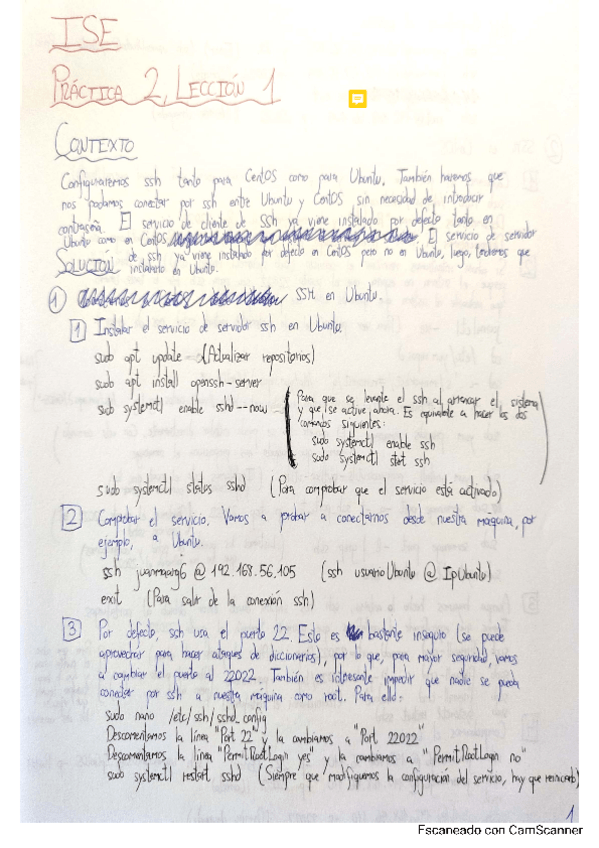 ISE
PRÁCTICA 2, LECCIÓN 1
CONTEXTO
Configuraremos ssh tanto para CentOS como para Ubuntu. También haremos que
nos podamos conectar por ssh entre Ubuntu y CentOS sin necesidad de introducir
contraseña. El servicio de cliente de SSh ya viene instalado por defecto tanto en
Ubuntu como en CentOS. El servicio de servidor
de ssh ya viene instalado por defecto en CentOS pero no en Ubuntu, luego, tendremos que
instalarlo en Ubuntu.
SOLUCIÓN
1 SSH en Ubuntu.
1 Instalar el servicio de servidor ssh en Ubuntu.
sudo apt update (Actualizar repositorios)
sudo apt install openssh-server
sudo systemctl enable sshd --now
(Para que se levante el ssh al arrancar el sistema
y que se active ahora. Es equivalente a hacer los dos
comandos siguientes:
sudo systemctl enable ssh
sudo systemctl start ssh )
sudo systemctl status sshd (Para comprobar que el servicio está activado)
2 Comprobar el servicio. Vamos a probar a conectarnos desde nuestra máquina, por
ejemplo, a Ubuntu.
ssh juanmaarg6 @ 192.168.56.105 (ssh usuarioUbuntu @ IpUbuntu)
exit (Para salir de la conexión ssh)
3 Por defecto, ssh usa el puerto 22. Esto es bastante inseguro (se puede
aprovechar para hacer ataques de diccionarios), por lo que, para mayor seguridad, vamos
a cambiar el puerto al 22022. También es interesante impedir que nadie se pueda
conectar por ssh a nuestra máquina como root. Para ello:
sudo nano /etc/ssh/sshd_config
Descomentamos la línea "Port 22" y la cambiamos a "Port 22022"
Descomentamos la línea "PermitRootLogin yes" y la cambiamos a "PermitRootLogin no"
sudo systemctl restart sshd (Siempre que modifiquemos la configuración del servicio, hay que reiniciarlo)
1
Escaneado con CamScanner